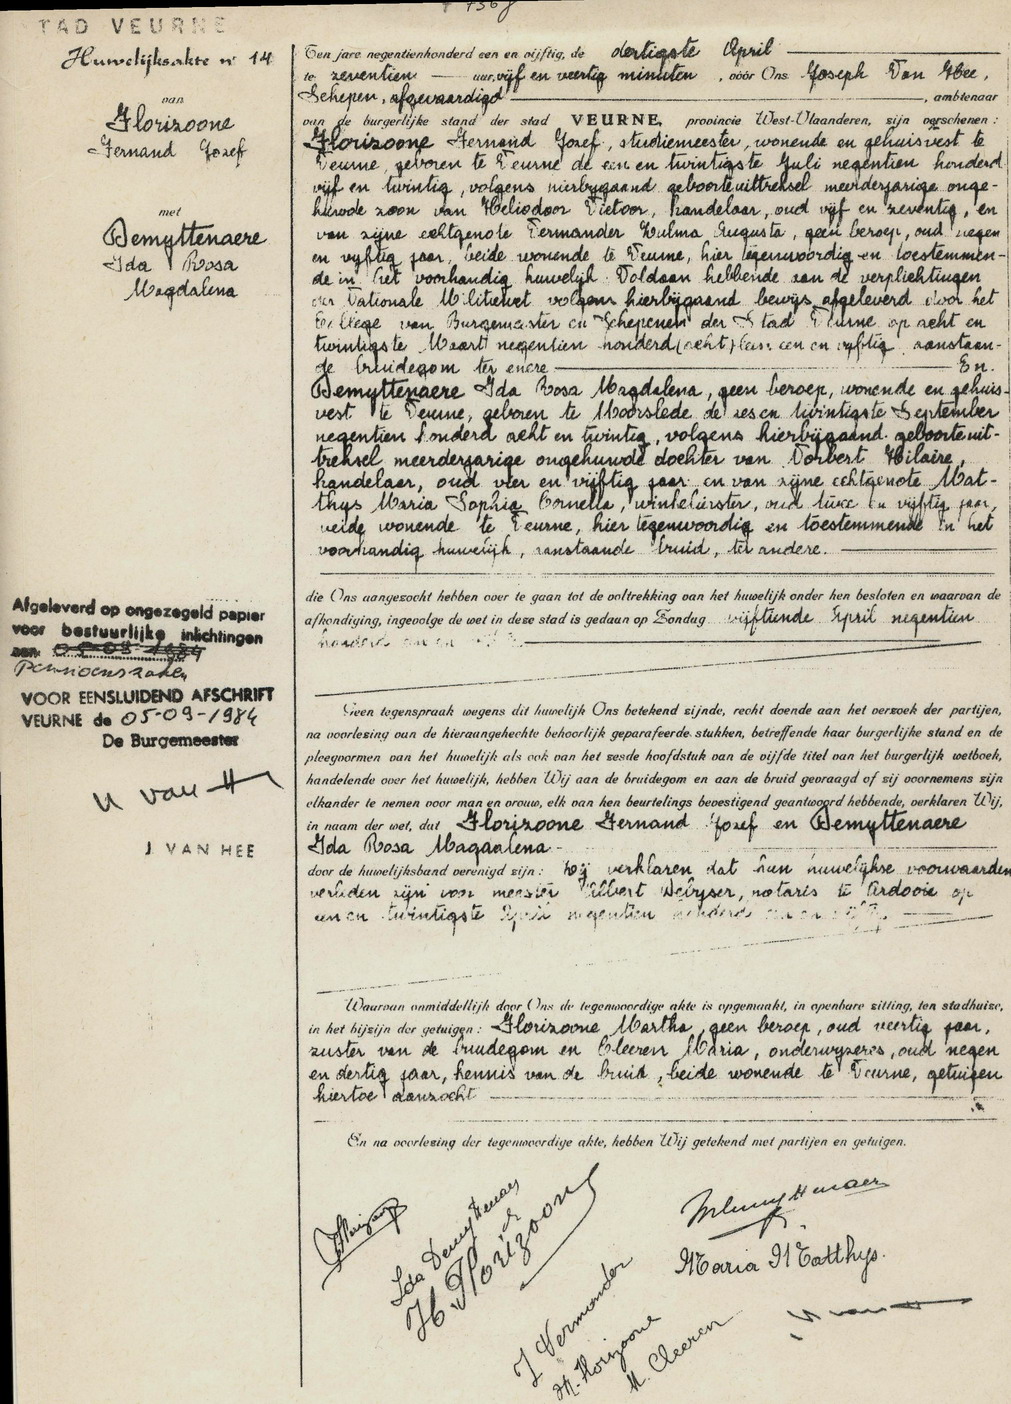 TAD VEURNE
Huwelijksakte nr 14
van
Florizoone
Fernand Jozef
met
Demyttenaere
Ida Rosa
Magdalena
Afgeleverd op ongezegeld papier
voor bestuurlijke inlichtingen
Pensioenszaken
VOOR EENSLUIDEND AFSCHRIFT
VEURNE de 05-09-1984
De Burgemeester
J. VAN HEE
Ten jare negentienhonderd een en vijftig, de dertigste April
te zeventien uur, vijf en veertig minuten, vóór Ons Joseph Van Hee,
Schepen, afgevaardigd, ambtenaar
van de burgerlijke stand der stad VEURNE, provincie West-Vlaanderen, zijn verschenen :
Florizoone Fernand Jozef, studiemeester, wonende en gehuisvest te
Veurne, geboren te Veurne de een en twintigste Juli negentien honderd
vijf en twintig, volgens hierbijgaand geboorteuittreksel meerderjarige onge-
huwde zoon van Heliodoor Victoor, handelaar, oud vijf en zeventig, en
van zijne echtgenote Vermander Zulma Augusta, geen beroep, oud negen
en vijftig jaar, beide wonende te Veurne, hier tegenwoordig en toestemmen-
de in het voorhandig huwelijk. Voldaan hebbende aan de verplichtingen
der Nationale Militiewet volgens hierbijgaand bewijs afgeleverd door het
College van Burgemeester en Schepenen der Stad Veurne op acht en
twintigste Maart negentien honderd (acht) een en vijftig, aanstaan-
de bruidegom ter enere En
Demyttenaere Ida Rosa Magdalena, geen beroep, wonende en gehuis-
vest te Veurne, geboren te Moorslede de zes en twintigste September
negentien honderd acht en twintig, volgens hierbijgaand geboorteuit-
treksel meerderjarige ongehuwde dochter van Norbert Hilaire,
handelaar, oud vier en vijftig jaar en van zijne echtgenote Mat-
thys Maria Sophia Cornelia, winkelierster, oud twee en vijftig jaar,
beide wonende te Veurne, hier tegenwoordig en toestemmende in het
voorhandig huwelijk, aanstaande bruid, ter andere.
die Ons aangezocht hebben over te gaan tot de voltrekking van het huwelijk onder hen besloten en waarvan de
afkondiging, ingevolge de wet in deze stad is gedaan op Zondag vijftiende April negentien
honderd een en
Geen tegenspraak wegens dit huwelijk Ons betekend zijnde, recht doende aan het verzoek der partijen,
na voorlezing van de hieraangehechte behoorlijk geparafeerde stukken, betreffende haar burgerlijke stand en de
pleegvormen van het huwelijk als ook van het zesde hoofdstuk van de vijfde titel van het burgerlijk wetboek,
handelende over het huwelijk, hebben Wij aan de bruidegom en aan de bruid gevraagd of zij voornemens zijn
elkander te nemen voor man en vrouw, elk van hen beurtelings bevestigend geantwoord hebbende, verklaren Wij,
in naam der wet, dat Florizoone Fernand Jozef en Demyttenaere
Ida Rosa Magdalena
door de huwelijksband verenigd zijn : Wij verklaren dat hun huwelijkse voorwaarden
verleden zijn voor meester Albert notaris te Ardooie op
een en twintigste April negentien honderd een en vijftig
Waarvan onmiddellijk door Ons de tegenwoordige akte is opgemaakt, in openbare zitting, ten stadhuize,
in het bijzijn der getuigen : Florizoone Martha, geen beroep, oud veertig jaar,
zuster van de bruidegom en Cleeren Maria, onderwijzeres, oud negen
en dertig jaar, kennis van de bruid, beide wonende te Veurne, getuigen
hiertoe aanzocht
En na voorlezing der tegenwoordige akte, hebben Wij getekend met partijen en getuigen.
Ida Demyttenaere
H. Florizoone
Maria Matthys.
Z Vermander
M. Florizoone
M. Cleeren